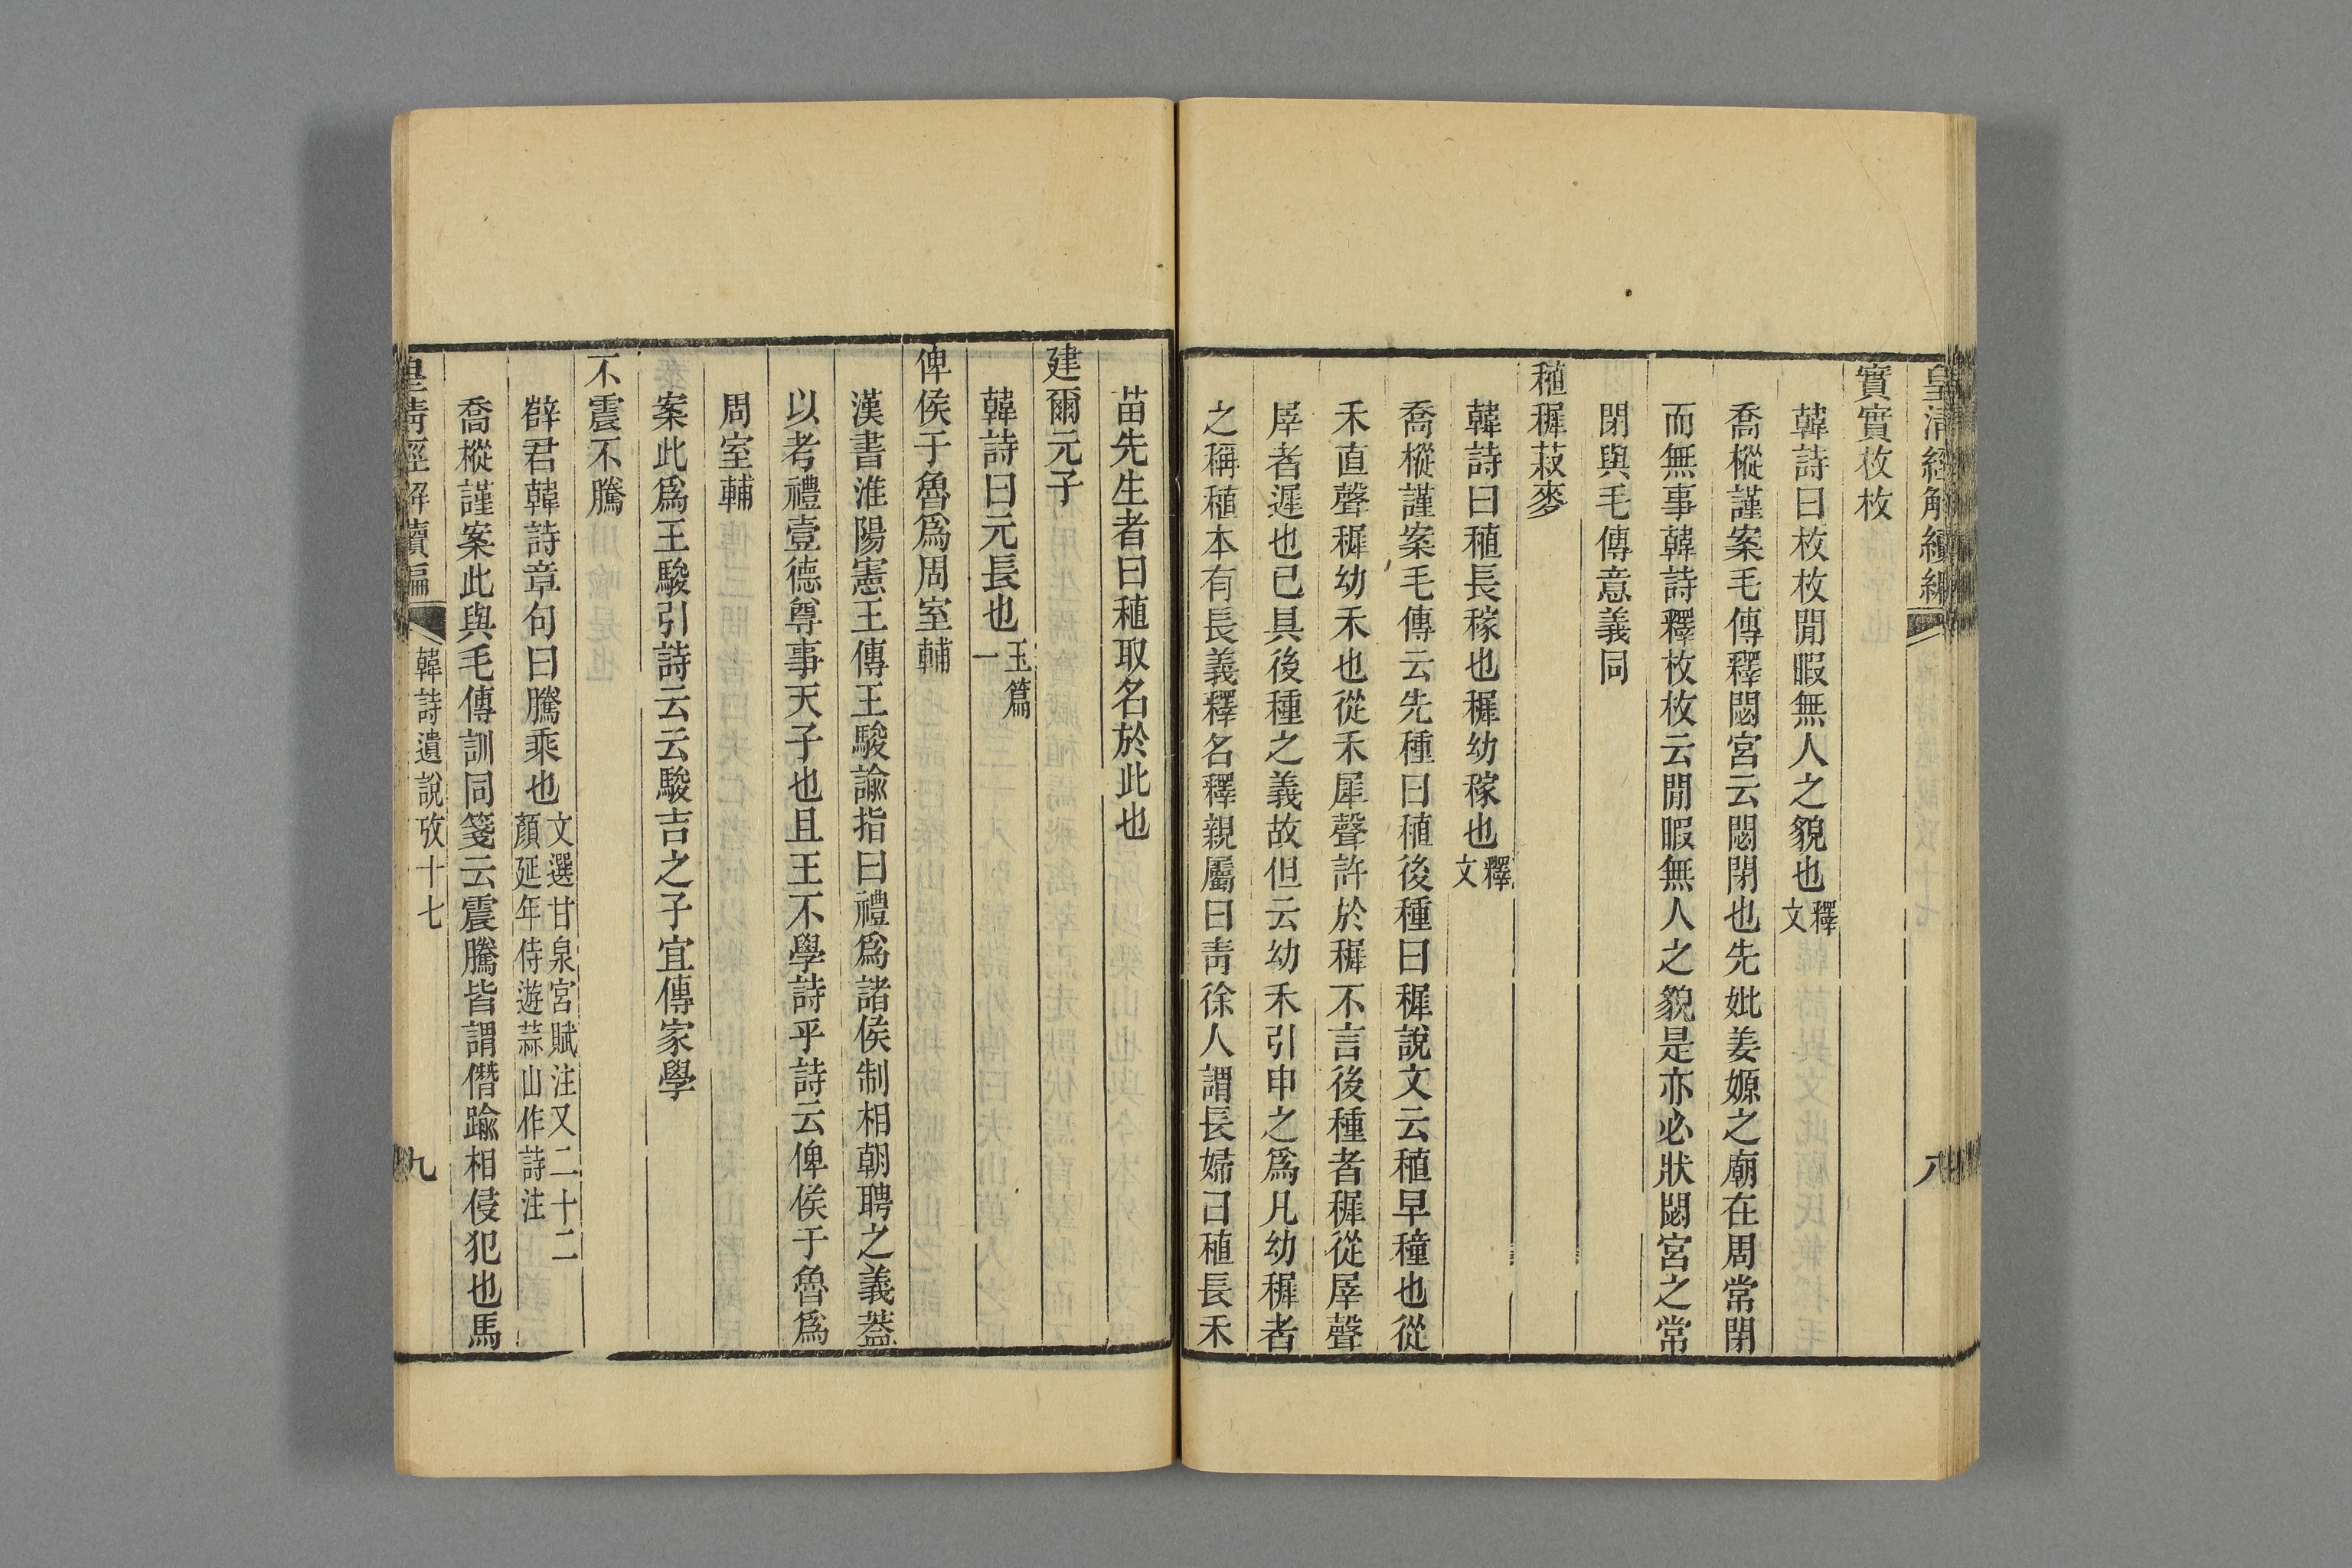 皇清經解續編
八
實實枚枚
韓詩曰枚枚閒暇無人之貌也釋文
喬樅謹案毛傳釋閟宮云閟閉也先妣姜嫄之廟在周常閉
而無事韓詩釋枚枚云閒暇無人之貌是亦必狀閟宮之常
閉與毛傳意義同
稙穉菽麥
韓詩曰稙長稼也穉幼稼也釋文
喬樅謹案毛傳云先種曰稙後種曰穉說文云稙早穜也從
禾直聲穉幼禾也從禾犀聲許於穉不言後種者穉從犀聲
犀者遲也已具後種之義故但云幼禾引申之爲凡幼穉者
之稱稙本有長義釋名釋親屬曰青徐人謂長婦曰稙長禾
苗先生者曰稙取名於此也
建爾元子
韓詩曰元長也玉篇一
俾侯于魯爲周室輔
漢書淮陽憲王傳王駿諭指曰禮爲諸侯制相朝聘之義葢
以考禮壹德尊事天子也且王不學詩乎詩云俾侯于魯爲
周室輔
案此爲王駿引詩云云駿吉之子宜傳家學
不震不騰
薛君韓詩章句曰騰乘也文選甘泉宮賦注又二十二顏延年侍遊蒜山作詩注
喬樅謹案此與毛傳訓同箋云震騰皆謂僭踰相侵犯也馬
皇清經解續編
韓詩遺說攷十七
九